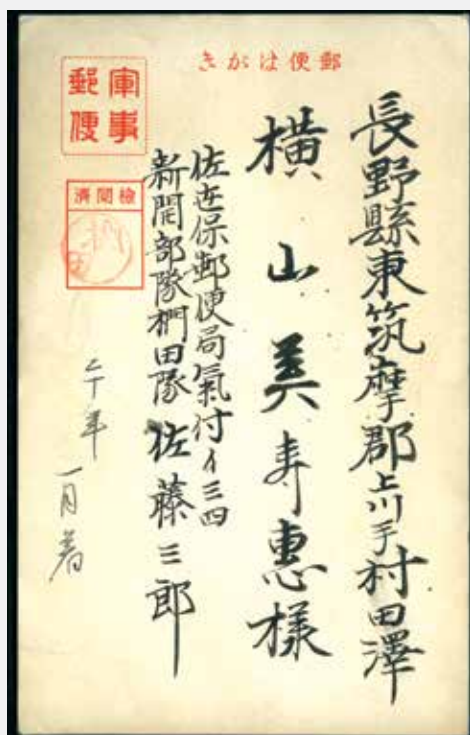 郵便はがき
軍事
郵便
檢閲濟
長野縣東筑摩郡上川手村田澤
横山美寿惠様
佐世保郵便局氣付イ三四
新開部隊椚田隊佐藤三郎
二十年一月着